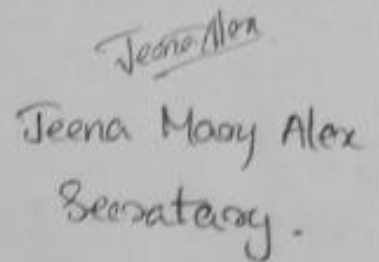 Jeena Alex
Jeena Mary Alex
Secratary.